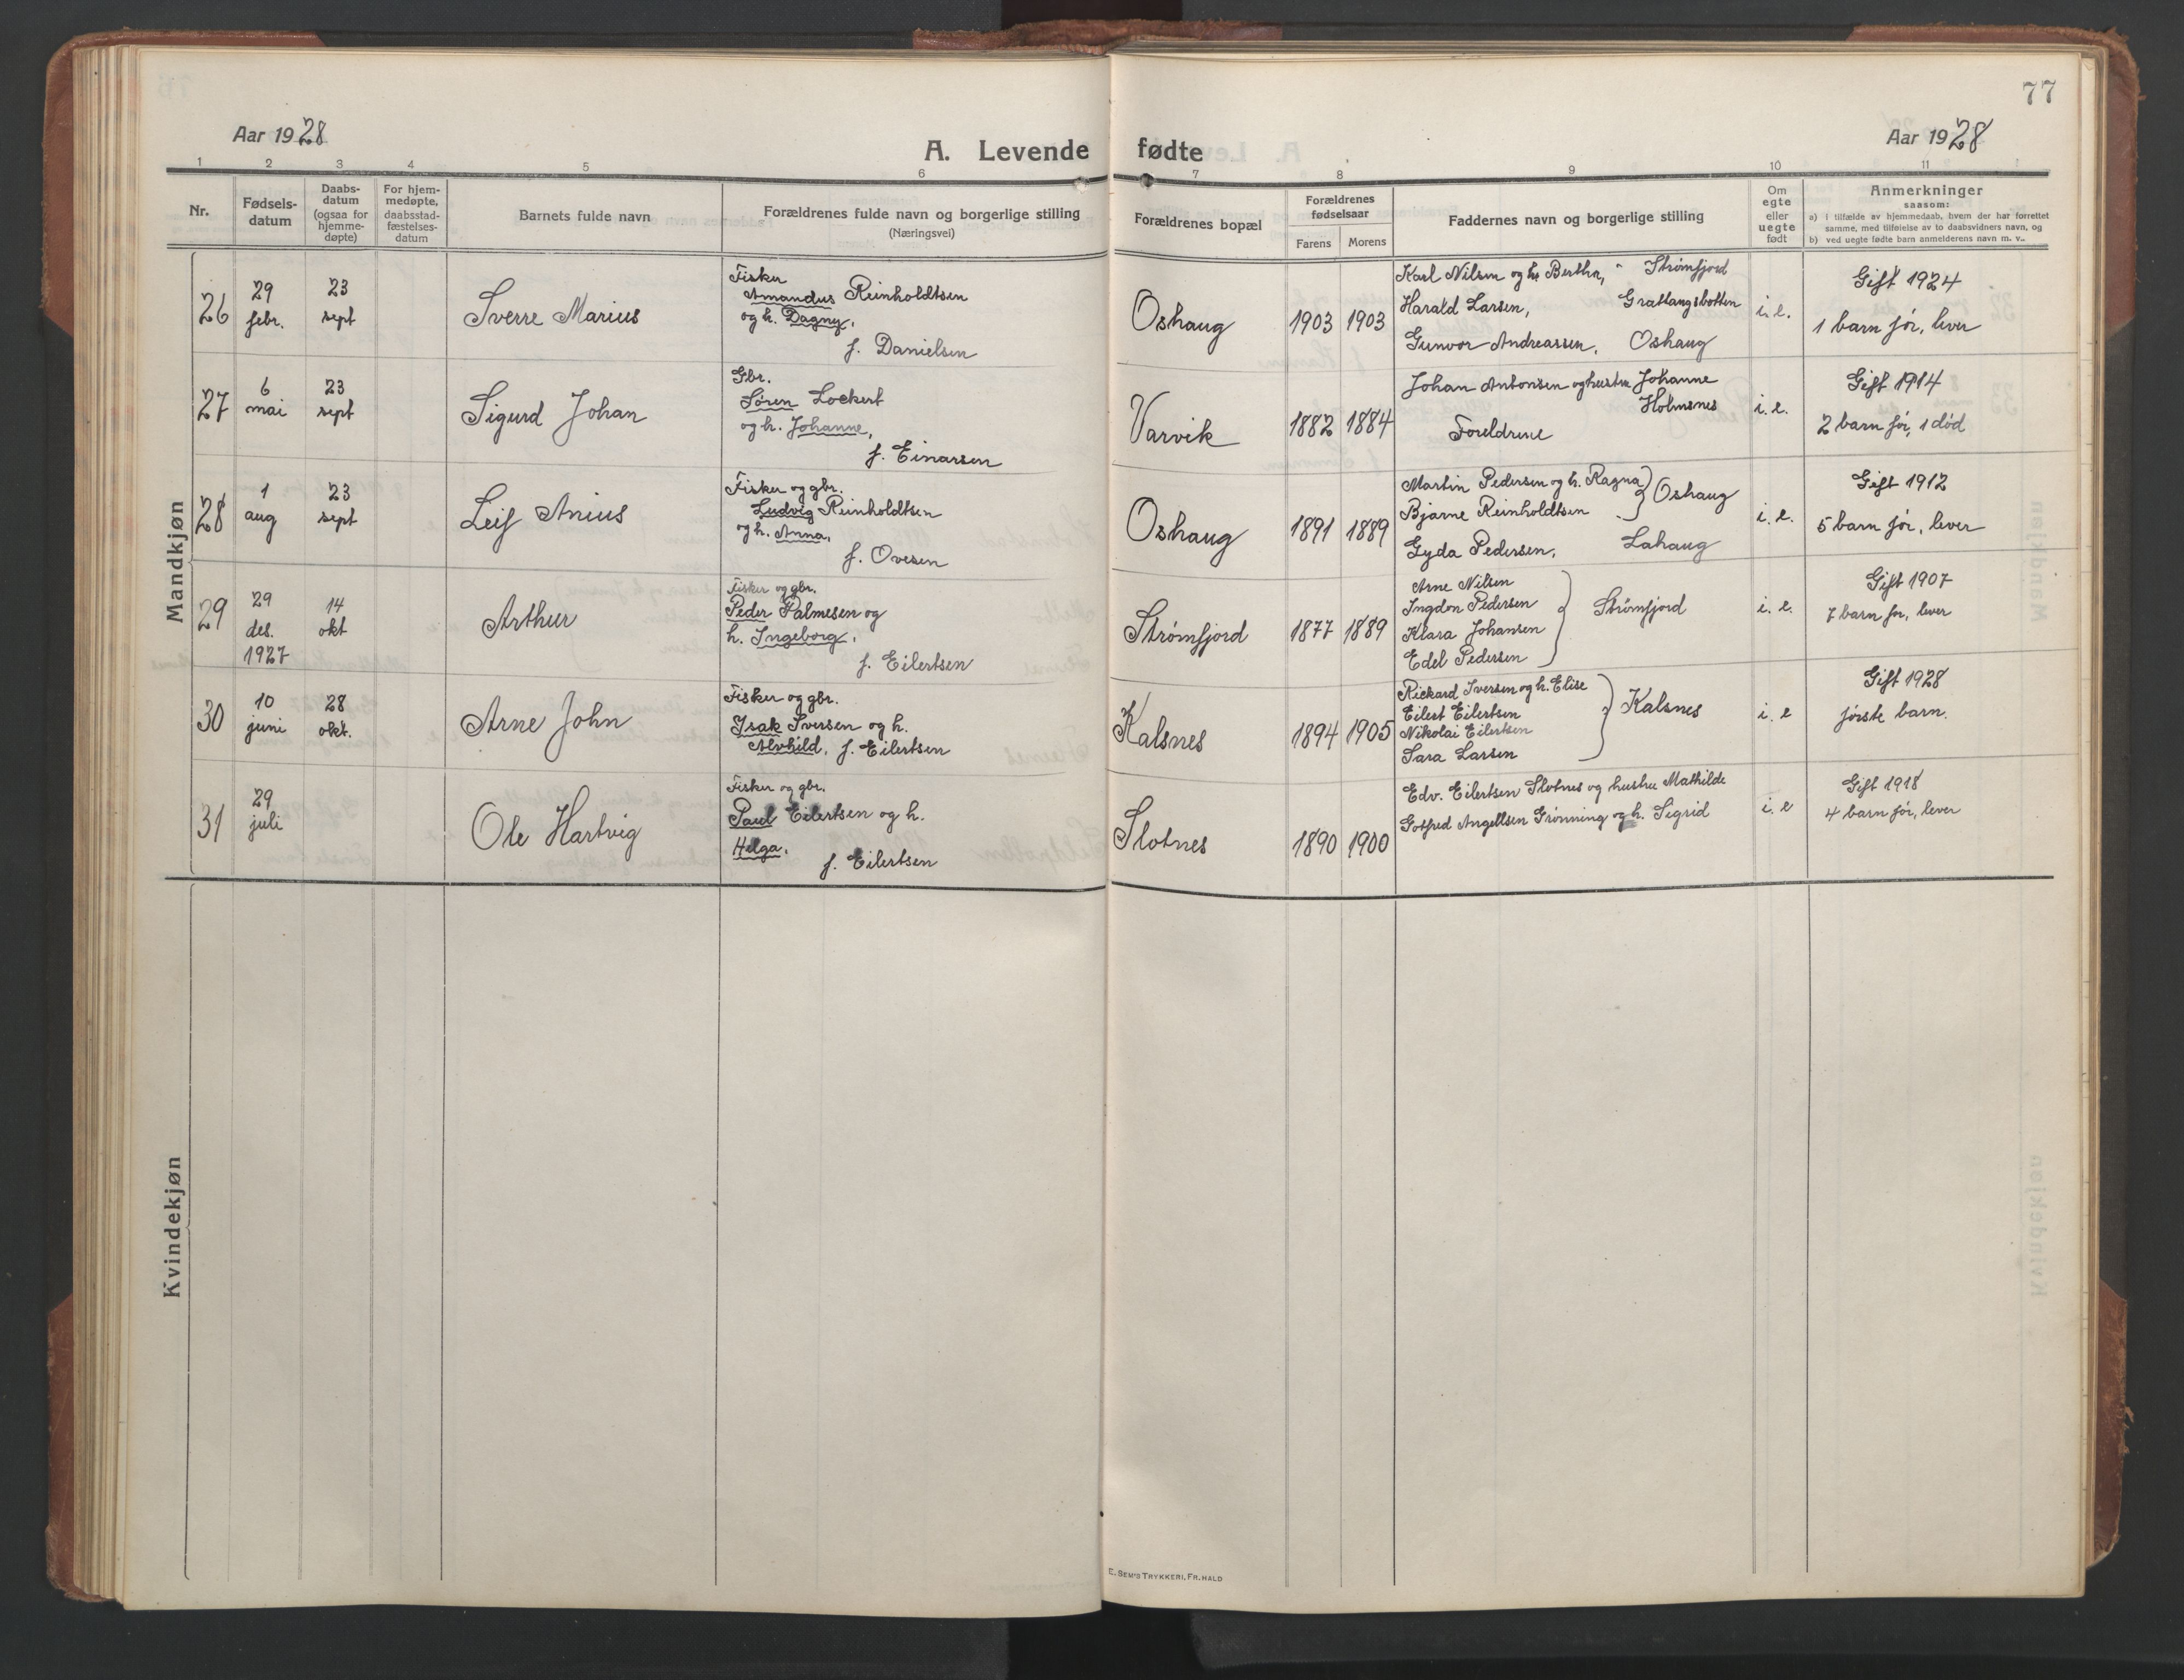 77
Aar 1928
A. Levende fødte
Aar 1928
1 2 3 4 5 6 7 8 9 10 11
Nr.
Fødsels-
datum
Daabs-
datum
(ogsaa for
hjemme-
døpte)
For hjem-
medøpte,
daabsstad-
fæstelses-
datum
Barnets fulde navn
Forældrenes fulde navn og borgerlige stilling
(Næringsvei)
Forældrenes bopæl
Forældrenes
fødselsaar
Farens Morens
Faddernes navn og borgerlige stilling
Om
egte
eller
uegte
født
Anmerkninger
saasom:
a) i tilfælde av hjemmedaab, hvem der har forrettet
samme, med tilføielse av to daabsvidners navn, og
b) ved uegte fødte barn anmelderens navn m. v.
Mandkjøn
26
29
febr.
23
sept
Sverre Marius
Fisker
Amandus Reinholdtsen
og h. Dagny,
f. Danielsen
Oshaug
1903 1903
Karl Nilsen og h. Bertha, Strømfjord
Harald Larsen, Gratangsbotten
Gunvor Andreassen, Oshaug
i. e.
Gift 1924
1 barn før, lever
27
6
mai
23
sept
Sigurd Johan
Gbr.
Søren Lockert
og h. Johanne,
f. Einarsen
Varvik
1882 1884
Johan Antonsen og hustru Johanne
Holmenes
Foreldrene
i. e.
Gift 1914
2 barn før, 1 død
28
1
aug
23
sept
Leif Anius
Fisker og gbr.
Ludvig Reinholdtsen
og h. Anna,
f. Ovesen
Oshaug
1891 1889
Martin Pedersen og h. Ragna
Bjarne Reinholdtsen
Oshaug
Gyda Pedersen, Lahaug
i. e.
Gift 1912
5 barn før, lever
29
29
des.
1927
14
okt
Arthur
Fisker og gbr.
Peder Palmesen og
h. Ingeborg,
f. Eilertsen
Strømfjord
1877 1889
Arne Nilsen
Ingdon Pedersen
Klara Johansen
Edel Pedersen
Strømfjord
i. e.
Gift 1907
7 barn før, lever
30
10
juni
28
okt.
Arne John
Fisker og gbr.
Isak Iversen og h.
Alvhild, f. Eilertsen
Kalsnes
1894 1905
Rickard Iversen og h. Elise
Eilert Eilertsen
Nikolai Eilertsen
Sara Larsen
Kalsnes
i. e
Gift 1928
første barn.
31
29
juli
Ole Hartvig
Fisker og gbr.
Paul Eilertsen og h.
Helga,
f. Eilertsen
Slotnes
1890 1900
Edv. Eilertsen Slotnes og hustru Mathilde
Gotfred Angellsen Grønning og h. Sigrid
i. e
Gift 1918
4 barn før, lever
Kvindekjøn
E. Sem's Trykkeri, Fr.hald